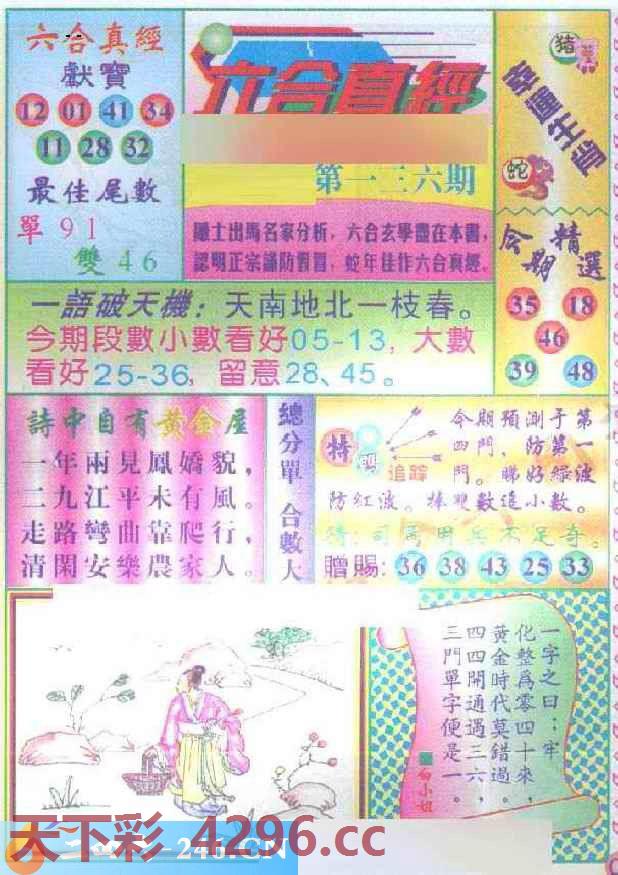 六合真經
獻寶
12 01 41 34
11 28 32
最佳尾數
單 91
雙 46
六合真經
第一三六期
隱士出馬名家分析，六合玄學盡在本書，
認明正宗謹防假冒，蛇年佳作六合真經。
猪
蛇
今期精選
35 18
46
39 48
一語破天機：天南地北一枝春。
今期段數小數看好05-13，大數
看好25-36，留意28、45。
詩中自有黃金屋
一年兩見鳳嬌貌，
二九江平未有風。
走路彎曲靠爬行，
清閑安樂農家人。
總分單 合數大
特
追踪
今期預測于第
四門，防第一
門。睇好綠波
防紅波。捧雙數追小數。
猜：司馬用兵不足奇。
贈賜：36 38 43 25 33
一字之曰：牢
化整爲零四十來，
黃金時代莫錯過。
四四開通遇三六，
三門單字便是一。
白小姐
天下彩 4296.cc
246.CN